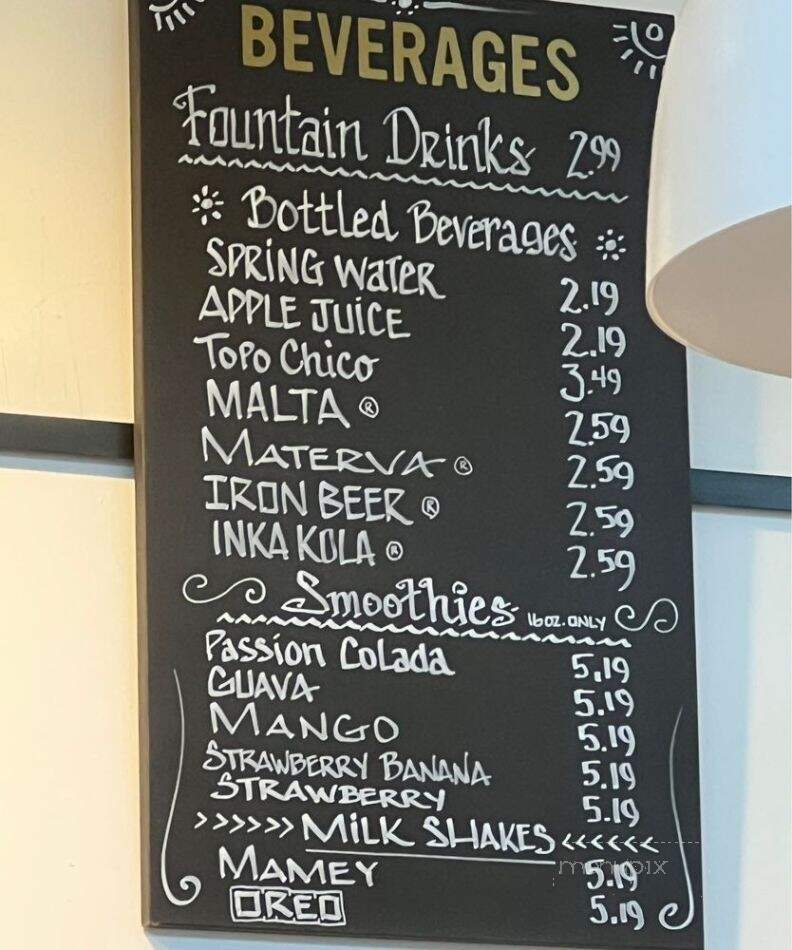 BEVERAGES
Fountain Drinks 2.99
Bottled Beverages
SPRING WATER 2.19
APPLE JUICE 2.19
TOPO CHICO 3.49
MALTA ® 2.59
MATERVA ® 2.59
IRON BEER ® 2.59
INKA KOLA ® 2.59
Smoothies 16 OZ. ONLY
Passion Colada 5.19
GUAVA 5.19
MANGO 5.19
STRAWBERRY BANANA 5.19
STRAWBERRY 5.19
>>>>>> MILK SHAKES <<<<<<
MAMEY 5.19
OREO 5.19
menupix